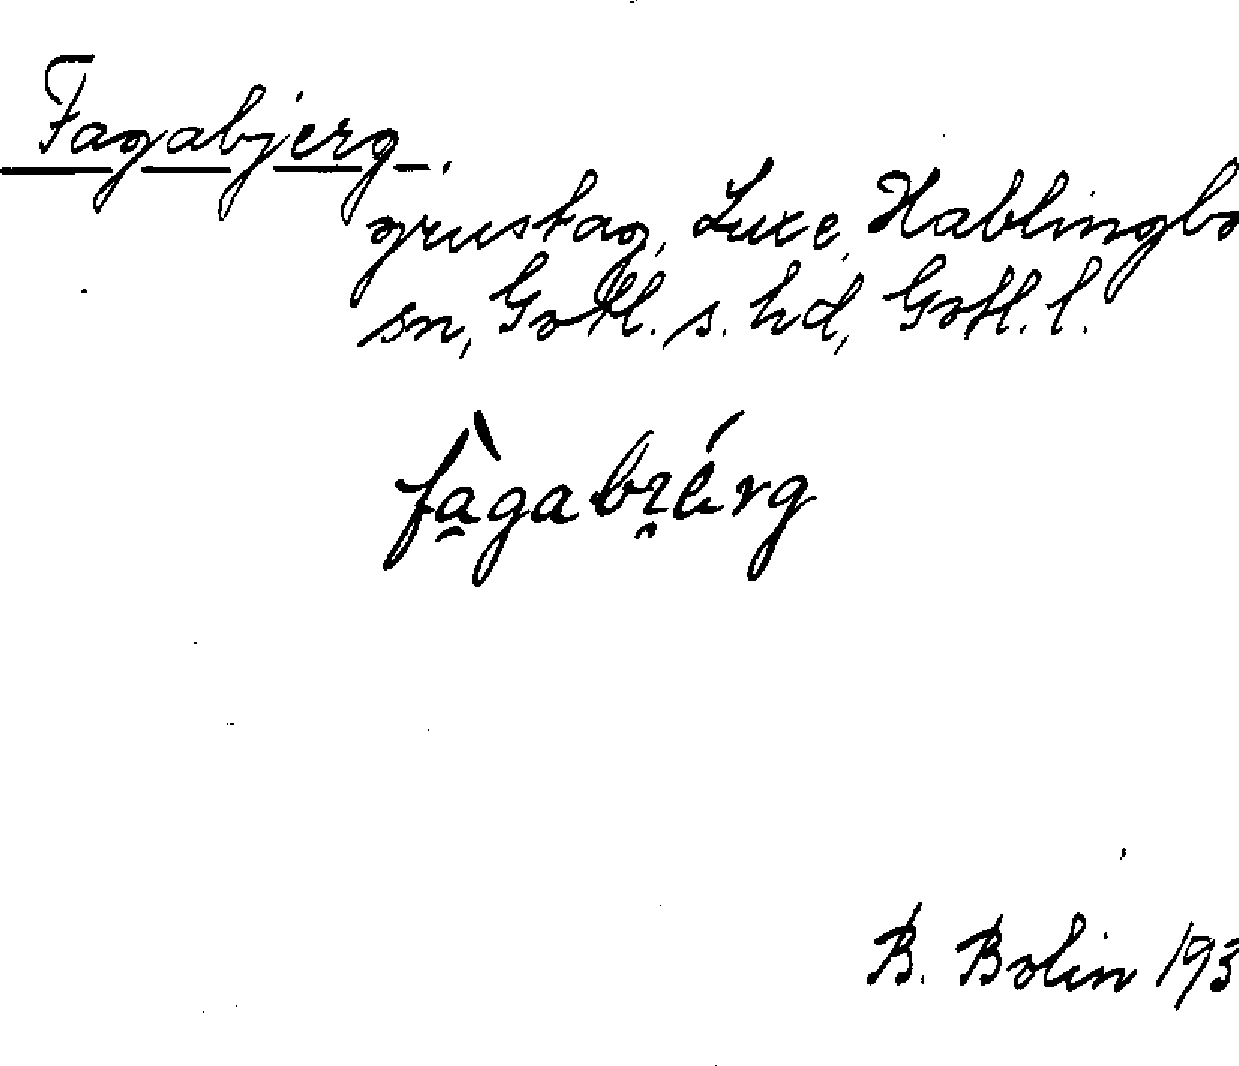 Fagabjerg.
grustag, Luxe, Hablingbo
sn, Gotl. s. hd, Gotl. l.
B. Bolin 193